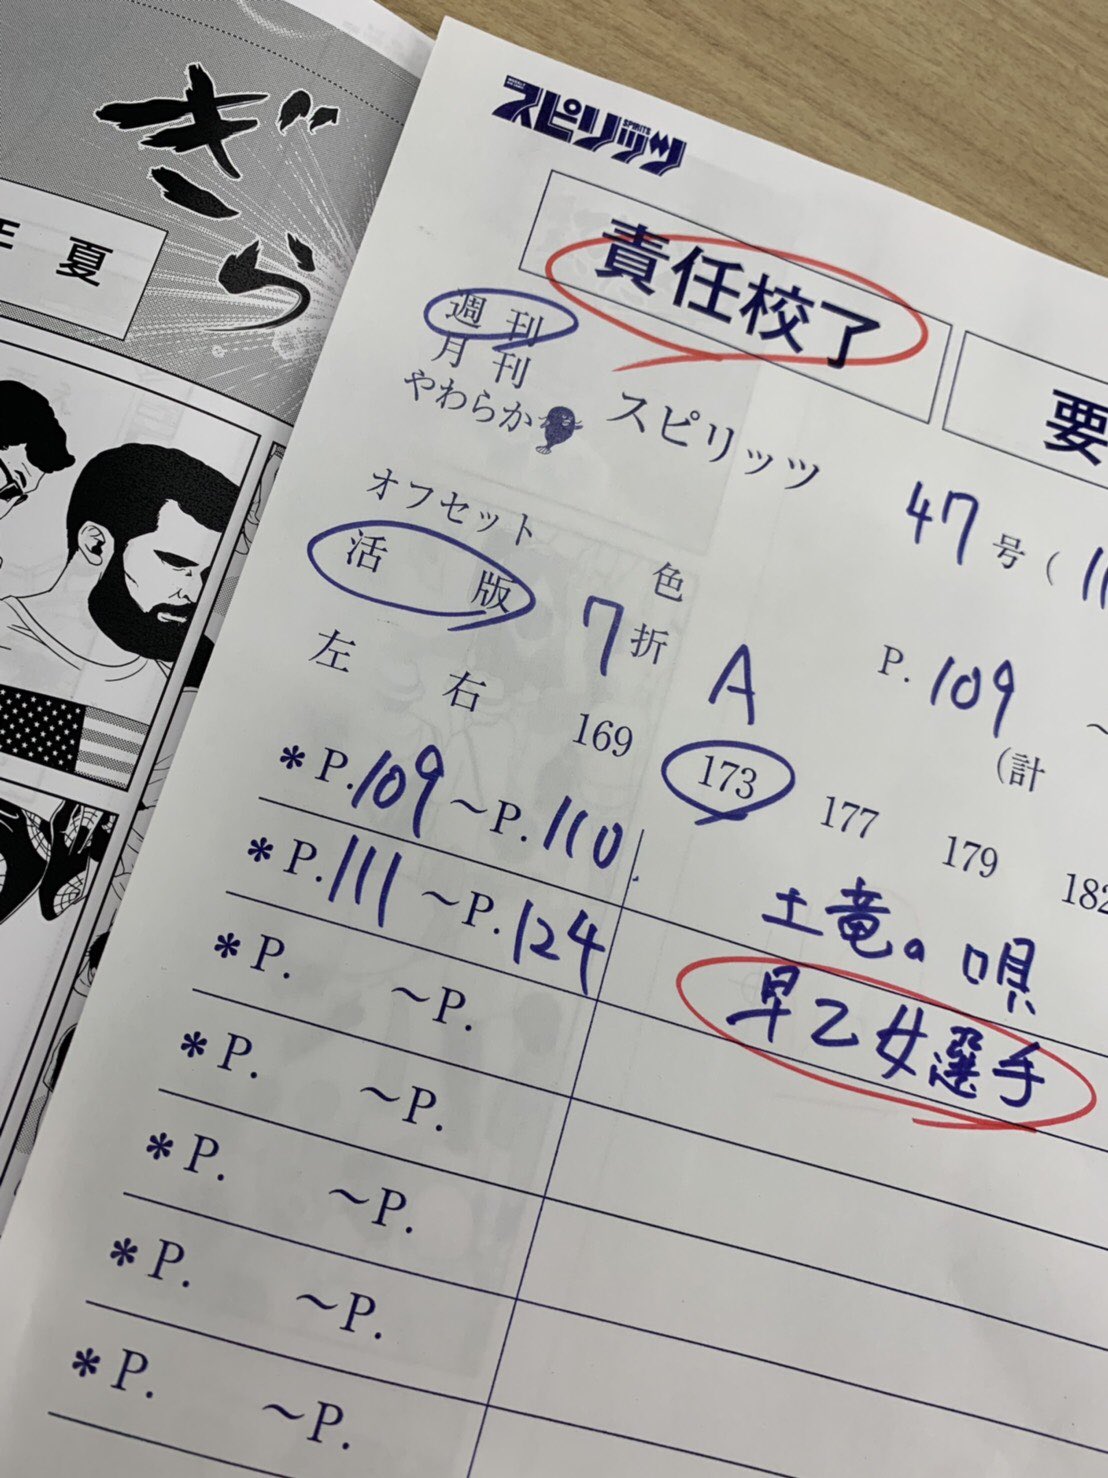 ぎら
夏
スピリッツ
SPIRITS
責任校了
要
週刊
月刊
やわらか
スピリッツ
47号(11
オフセット
活版
色
7折
A
P.109 ~
(計
左 右
169 173 177 179 182
*P.109~P.110
土竜の唄
*P.111~P.124
早乙女選手
*P. ~P.
*P. ~P.
*P. ~P.
*P. ~P.
*P. ~P.